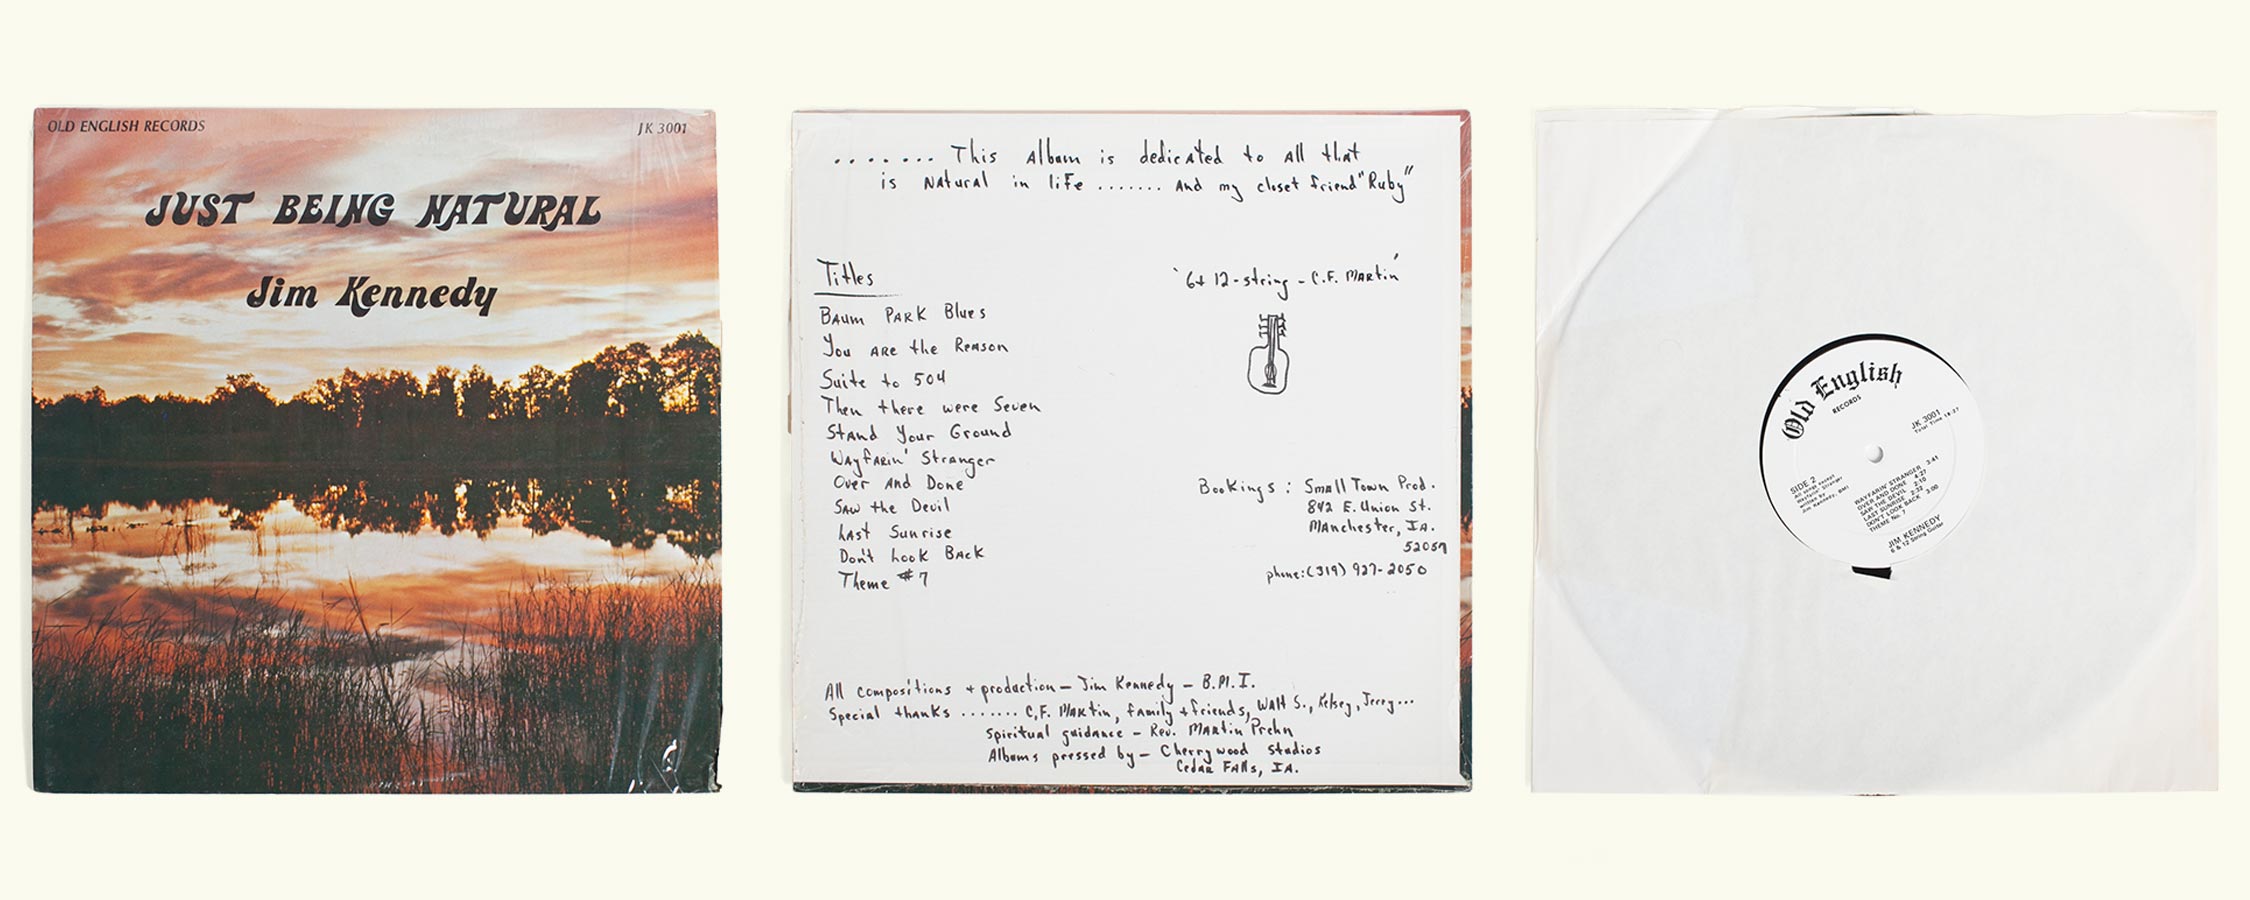 OLD ENGLISH RECORDS
JK 3001
JUST BEING NATURAL
Jim Kennedy
....... This Album is dedicated to All that
is Natural in life ....... And my closet friend "Ruby"
Titles
Baum Park Blues
You are the Reason
Suite to 504
Then there were Seven
Stand Your Ground
Wayfarin' Stranger
Over And Done
Saw the Devil
Last Sunrise
Don't Look Back
Theme #7
'6+12-string - C.F. Martin'
Bookings: Small Town Prod.
842 E. Union St.
Manchester, IA.
52057
phone: (319) 927-2050
All compositions + production - Jim Kennedy - B.M.I.
Special thanks ....... C.F. Martin, family + friends, Walt S., Kelsey, Jerry...
Spiritual guidance - Rev. Martin Prehn
Albums pressed by - Cherrywood Studios
Cedar Falls, IA.
Old English
RECORDS
JK 3001
Total Time 18:27
SIDE 2
All songs except
Wayfarin' Stranger
written by
Jim Kennedy, BMI
WAYFARIN' STRANGER 3:41
OVER AND DONE 4:27
SAW THE DEVIL 2:10
LAST SUNRISE 2:22
DON'T LOOK BACK 3:00
THEME No. 7
JIM KENNEDY
6 & 12 String Guitar